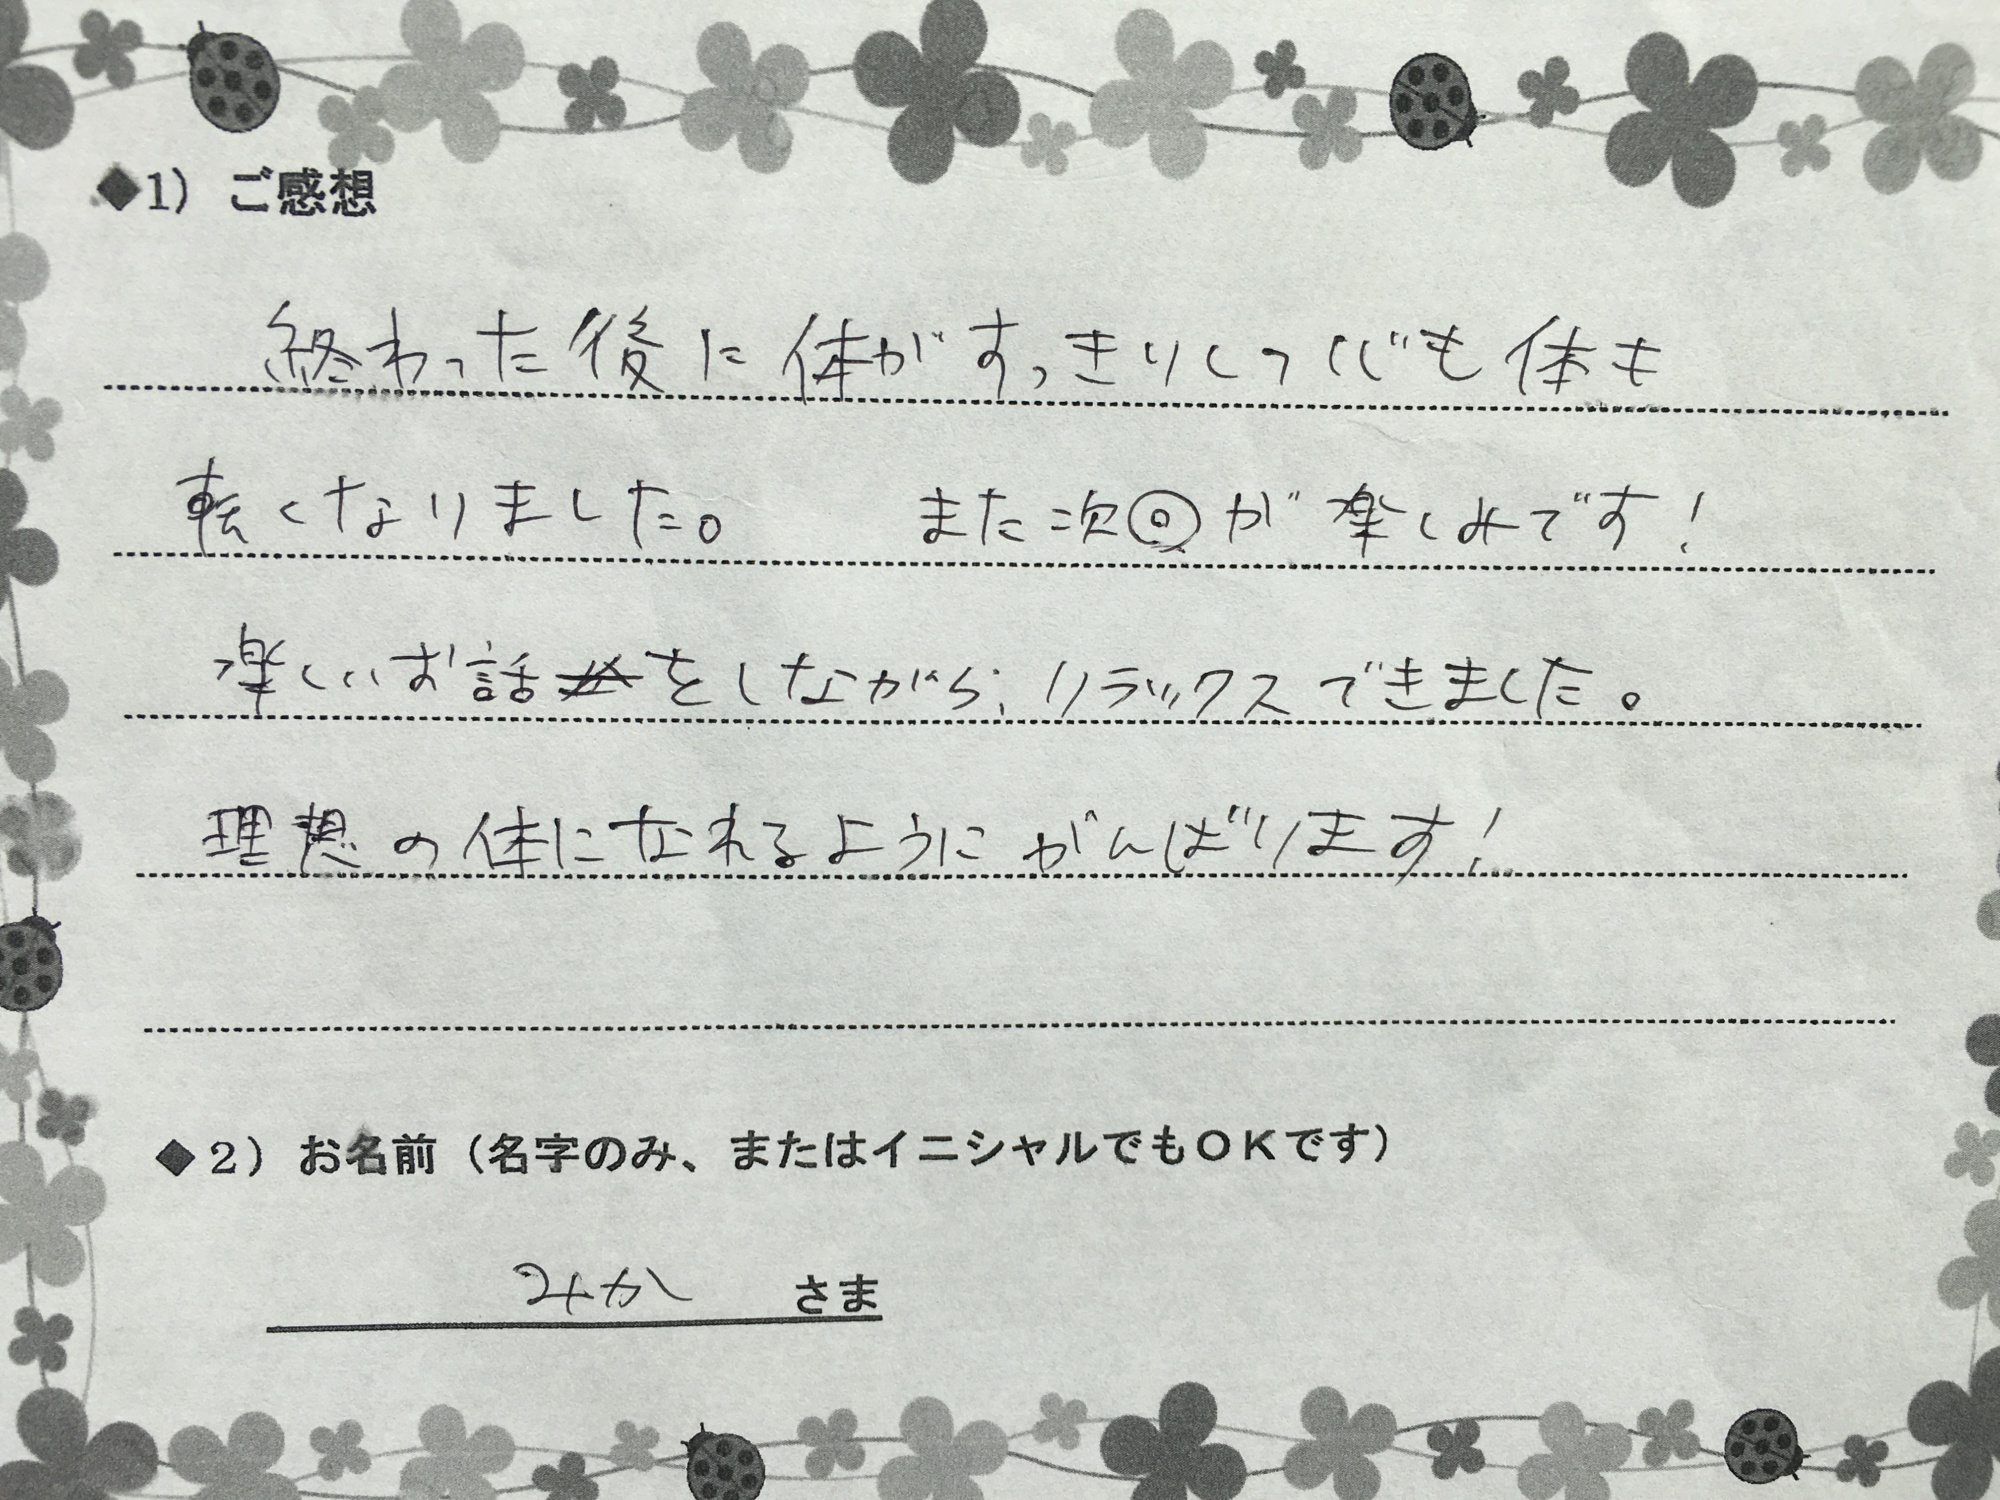 ◆1）ご感想
終わった後に体がすっきりして心も体も
転くなりました。 また次回が楽しみです！
楽しいお話をしながら、リラックスできました。
理想の体になれるようにがんばります！
◆2）お名前（名字のみ、またはイニシャルでもＯＫです）
みか さま